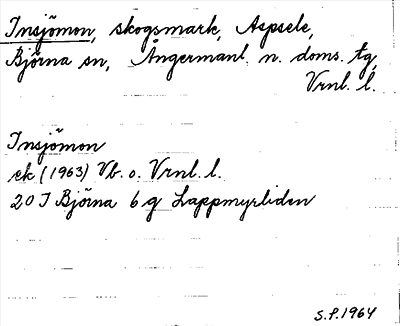 Insjömon, skogsmark, Aspsele,
Björna sn, Ångermanl. n. doms. tg,
Vrnl. l.
Insjömon
ek (1963) Vb. o. Vrnl. l.
20 J Björna 6 g Lappmyrliden
S.P. 1964